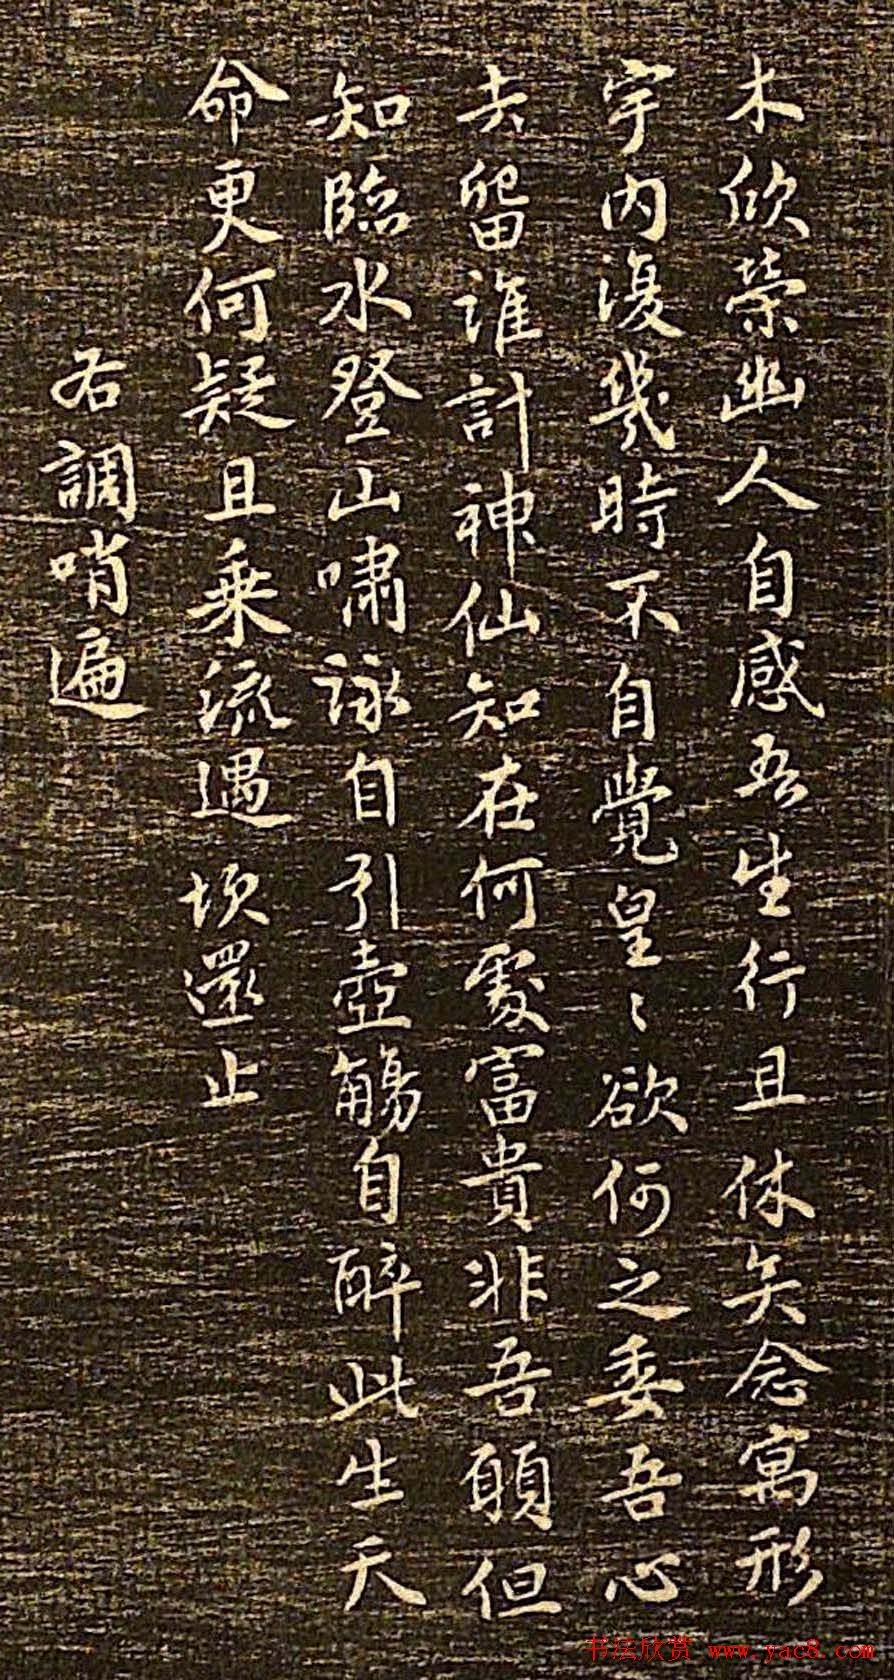 木欣榮幽人自感吾生行且休矣念寓形
宇内復幾時不自覺皇〻欲何之委吾心
去留誰計神仙知在何處富貴非吾願但
知臨水登山嘯詠自引壺觴自醉此生天
命更何疑且乘流遇坎還止
右調哨遍
书法欣赏 www.yac8.com